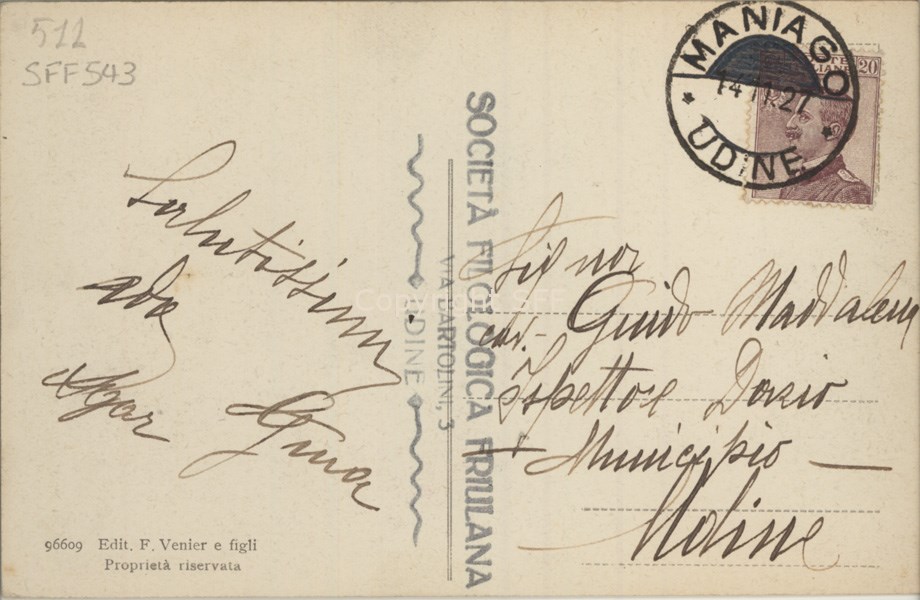 511
SFF 543
MANIAGO
14.11.27
UDINE
20
SOCIETÀ FILOLOGICA FRIULANA
VIA BARTOLINI, 3
UDINE
Copyright SFF
Salutissimi
Ada
Gina
Signor
cav. Guido Maddalena
Ispettore Dazio
Municipio
Udine
96609 Edit. F. Venier e figli
Proprietà riservata